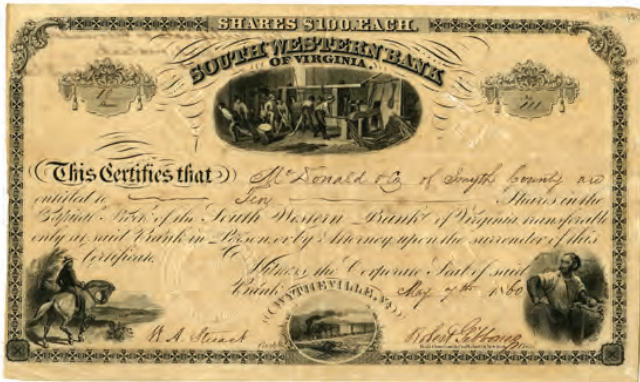 SHARES $100. EACH.
SOUTH WESTERN BANK
OF VIRGINIA.
10
No 111
This Certifies that McDonald & Co of Smyth County are
entitled to Ten Shares in the
Capital Stock of the South Western Bank of Virginia transferable
only at said Bank in Person, or by Attorney, upon the surrender of this
Certificate.
Witness the Corporate Seal of said
Bank May 7th 1860
WYTHEVILLE, VA.
Robert Gibboney